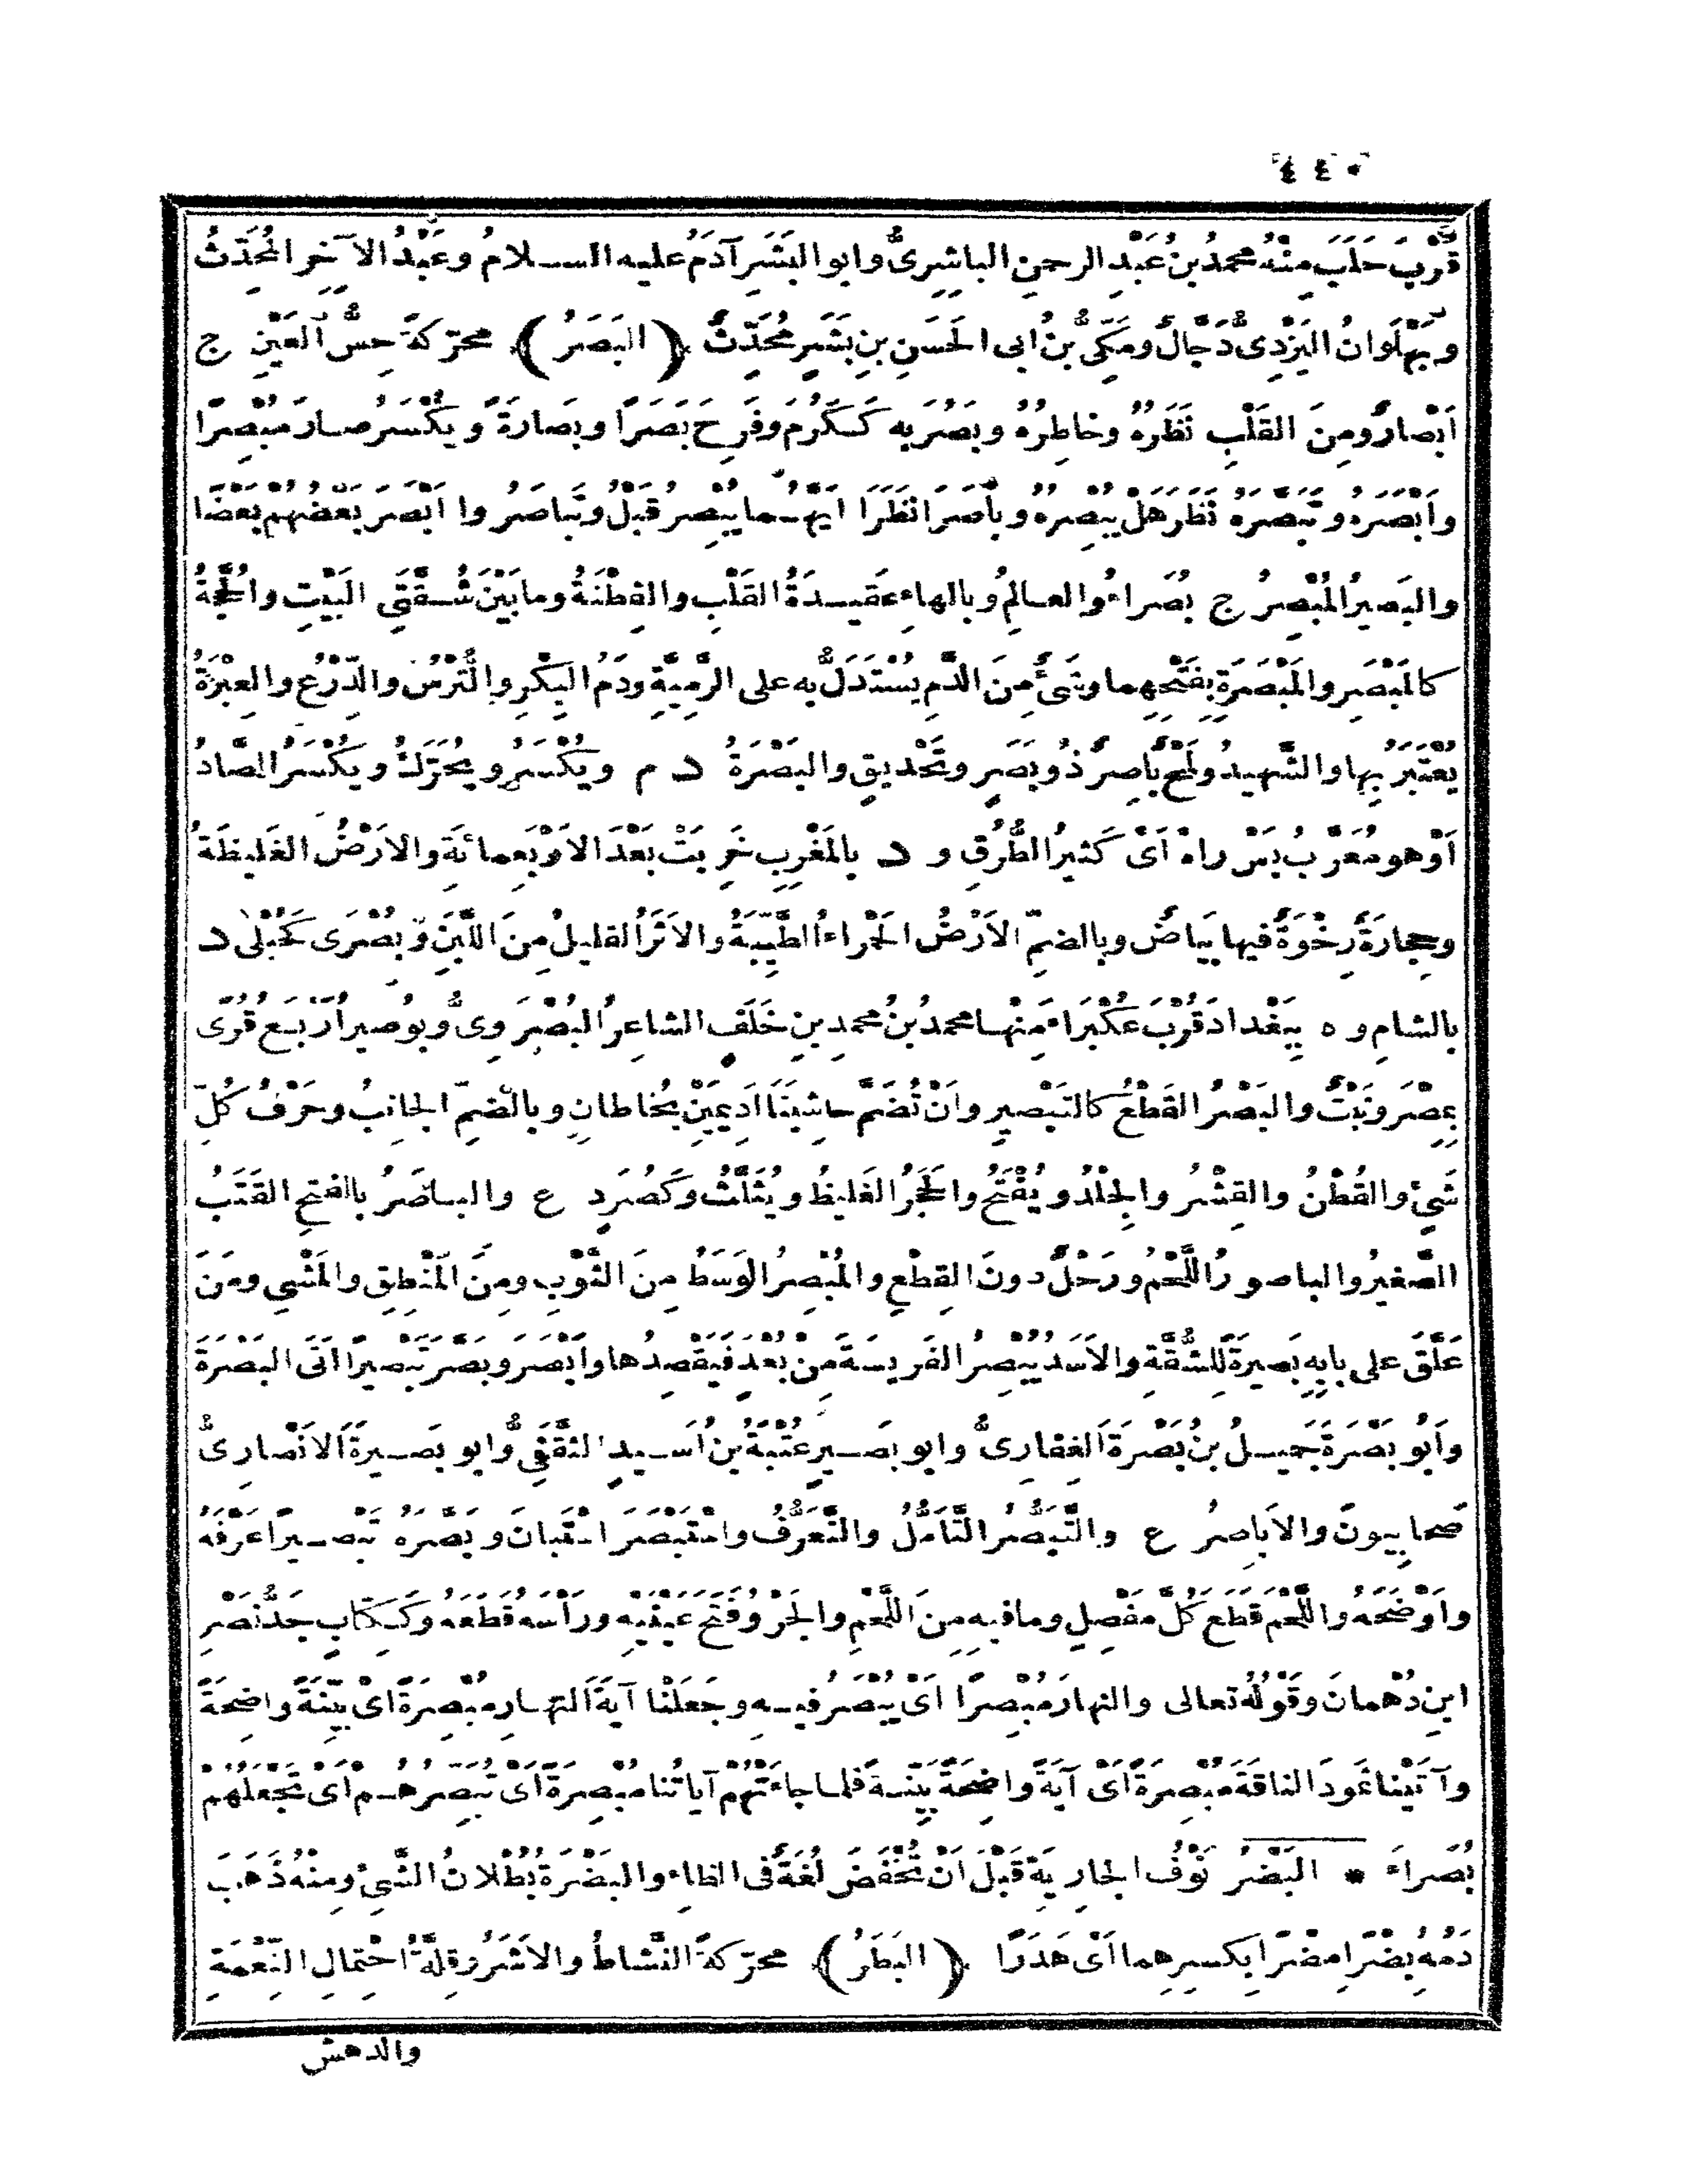 ٤٤٠
قُرْبَ حَلَبَ مِنْهُ محمدُ بنُ عَبْدِ الرحمنِ الباشِرِىُّ وابو البَشَرِ آدَمُ عليه السلامُ وعَبْدُ الآخِرِ المُحَدِّثُ
وبَهْلَوانُ اليَزْدِىُّ دَجَّالٌ ومَكِّىُّ بنُ ابى الحَسَنِ بنِ بَشَرٍ مُحَدِّثٌ ﴿ البَصَرُ ﴾ محرّكةً حِسُّ العَيْنِ ج
اَبْصارٌ ومِنَ القَلْبِ نَظَرُهُ وخاطِرُهُ وبَصُرَ به كَكَرُمَ وفَرِحَ بَصَرًا وبَصارَةً ويُكْسَرُ صارَ مُبْصِرًا
واَبْصَرَهُ وتَبَصَّرَهُ نَظَرَ هَلْ يُبْصِرُهُ وباصَرَا نَظَرَا اَيُّهُما يُبْصِرُ قَبْلُ وتَباصَرُوا اَبْصَرَ بَعْضُهُم بَعْضًا
والبَصيرُ المُبْصِرُ ج بُصَراءُ والعالِمُ وبالهاءِ عَقيدَةُ القَلْبِ والفِطْنَةُ وما بَيْنَ شُقَّتَىِ البَيْتِ والحُجَّةُ
كالمَبْصَرِ والمَبْصَرَةِ بِفَتْحِهِما وشَىْءٌ مِنَ الدَّمِ يُسْتَدَلُّ به على الرَّمِيَّةِ ودَمُ البِكْرِ والتُّرْسُ والدِّرْعُ والعِبْرَةُ
يُعْتَبَرُ بِها والشَّهيدُ ولَمْحٌ باصِرٌ ذُو بَصَرٍ وتَحْديقٍ والبَصْرَةُ د م ويُكْسَرُ ويُحَرَّكُ ويُكْسَرُ الصَّادُ
اَوْ هو مُعَرَّبُ بَسْ راهْ اَىْ كَثيرُ الطُّرُقِ و د بالمَغْرِبِ خَرِبَتْ بَعْدَ الاَرْبَعِمائَةِ والاَرْضُ الغَليظَةُ
وحِجارَةٌ رِخْوَةٌ فيها بَياضٌ وبالضمِّ الاَرْضُ الحَمْراءُ الطَّيِّبَةُ والاَثَرُ القليلُ مِنَ اللَّبَنِ وبُصْرَى كَحُبْلَى د
بالشامِ و ه بِبَغْدادَ قُرْبَ عُكْبَراءَ مِنْها محمدُ بنُ محمدِ بنِ خَلَفٍ الشاعِرُ البُصْرَوِىُّ وبُوصيرُ اَرْبَعُ قُرًى
بِمِصْرَ ونَبْتٌ والبَصْرُ القَطْعُ كالتَبْصيرِ واَنْ تُضَمَّ حاشِيَتَا اَديمَيْنِ يُخاطانِ وبالضمِّ الجانِبُ وحَرْفُ كُلِّ
شَىْءٍ والقُطْنُ والقِشْرُ والجِلْدُ ويُفْتَحُ والحَجَرُ الغَليظُ ويُثَلَّثُ وكَصُرَدٍ ع والباصَرُ بالفتحِ القَتَبُ
الصَّغيرُ والباصورُ اللَّحْمُ ورَحْلٌ دونَ القِطْعِ والمُبْصِرُ الوَسَطُ مِنَ الثَّوْبِ ومِنَ المَنْطِقِ والمَشْىِ ومَنَ
عَلَّقَ على بابِهِ بَصيرَةً لِلشُّقَّةِ والاَسَدُ يُبْصِرُ الفَريسَةَ مِنْ بُعْدٍ فَيَقْصِدُها واَبْصَرَ وبَصَّرَ تَبْصيرًا اَتَى البَصْرَةَ
واَبُو بَصْرَةَ جَميلُ بنُ بَصْرَةَ الغِفارِىُّ وابو بَصيرٍ عُتْبَةُ بنُ اَسيدٍ الثقَفِىُّ وابو بَصيرَةَ الاَنْصارِىُّ
صحابِيونَ والاَباصِرُ ع والتَّبَصُّرُ التَّأَمُّلُ والتَّعَرُّفُ واسْتَبْصَرَ اسْتَبانَ وبَصَّرَهُ تَبْصيرًا عَرَّفَهُ
واَوْضَحَهُ واللَّحْمَ قَطَعَ كُلَّ مَفْصِلٍ وما فيهِ مِنَ اللَّحْمِ والجَرْوُ فَتَحَ عَيْنَيْهِ ورَأْسَهُ قَطَعَهُ وكَكِتابٍ جَدُّ نَصْرِ
ابنِ دُهْمانَ وقَوْلُهُ تعالى والنهارَ مُبْصِرًا اَىْ يُبْصَرُ فيهِ وجَعَلْنا آيَةَ النهارِ مُبْصِرَةً اَىْ بَيِّنَةً واضِحَةً
وآتَيْنا ثَمُودَ الناقَةَ مُبْصِرَةً اَىْ آيَةً واضِحَةً بَيِّنَةً فلما جاءَتْهُمْ آياتُنا مُبْصِرَةً اَىْ تُبَصِّرُهُمْ اَىْ تَجْعَلُهُمْ
بُصَراءَ * البَضْرُ نَوْفُ الجارِيَةِ قَبْلَ اَنْ تُخْفَضَ لُغَةٌ فى الظاءِ والبَضْرَةُ بُطْلانُ الشَّىْءِ ومِنْهُ ذَهَبَ
دَمُهُ بِضْرًا مِضْرًا بِكسرِهِما اَىْ هَدَرًا ﴿ البَطَرُ ﴾ محرّكةً النَّشاطُ والاَشَرُ وقِلَّةُ احْتِمالِ النِّعْمَةِ
والدهش